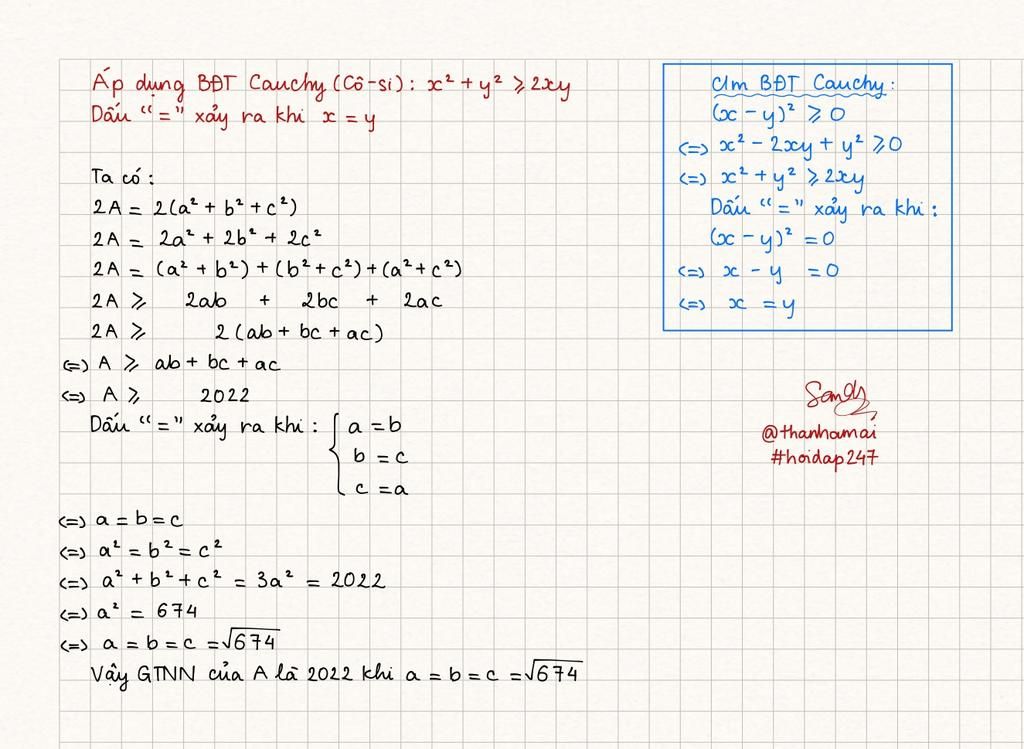 Áp dụng BĐT Cauchy (Cô-si): x² + y² ⩾ 2xy
Dấu “=” xảy ra khi x = y
Ta có:
2A = 2(a² + b² + c²)
2A = 2a² + 2b² + 2c²
2A = (a² + b²) + (b² + c²) + (a² + c²)
2A ⩾ 2ab + 2bc + 2ac
2A ⩾ 2(ab + bc + ac)
<=> A ⩾ ab + bc + ac
<=> A ⩾ 2022
Dấu “=” xảy ra khi: { a = b
b = c
c = a
<=> a = b = c
<=> a² = b² = c²
<=> a² + b² + c² = 3a² = 2022
<=> a² = 674
<=> a = b = c = √674
Vậy GTNN của A là 2022 khi a = b = c = √674
Cm BĐT Cauchy:
(x - y)² ⩾ 0
<=> x² - 2xy + y² ⩾ 0
<=> x² + y² ⩾ 2xy
Dấu “=” xảy ra khi:
(x - y)² = 0
<=> x - y = 0
<=> x = y
Sandy
@thanhamai
#hoidap247